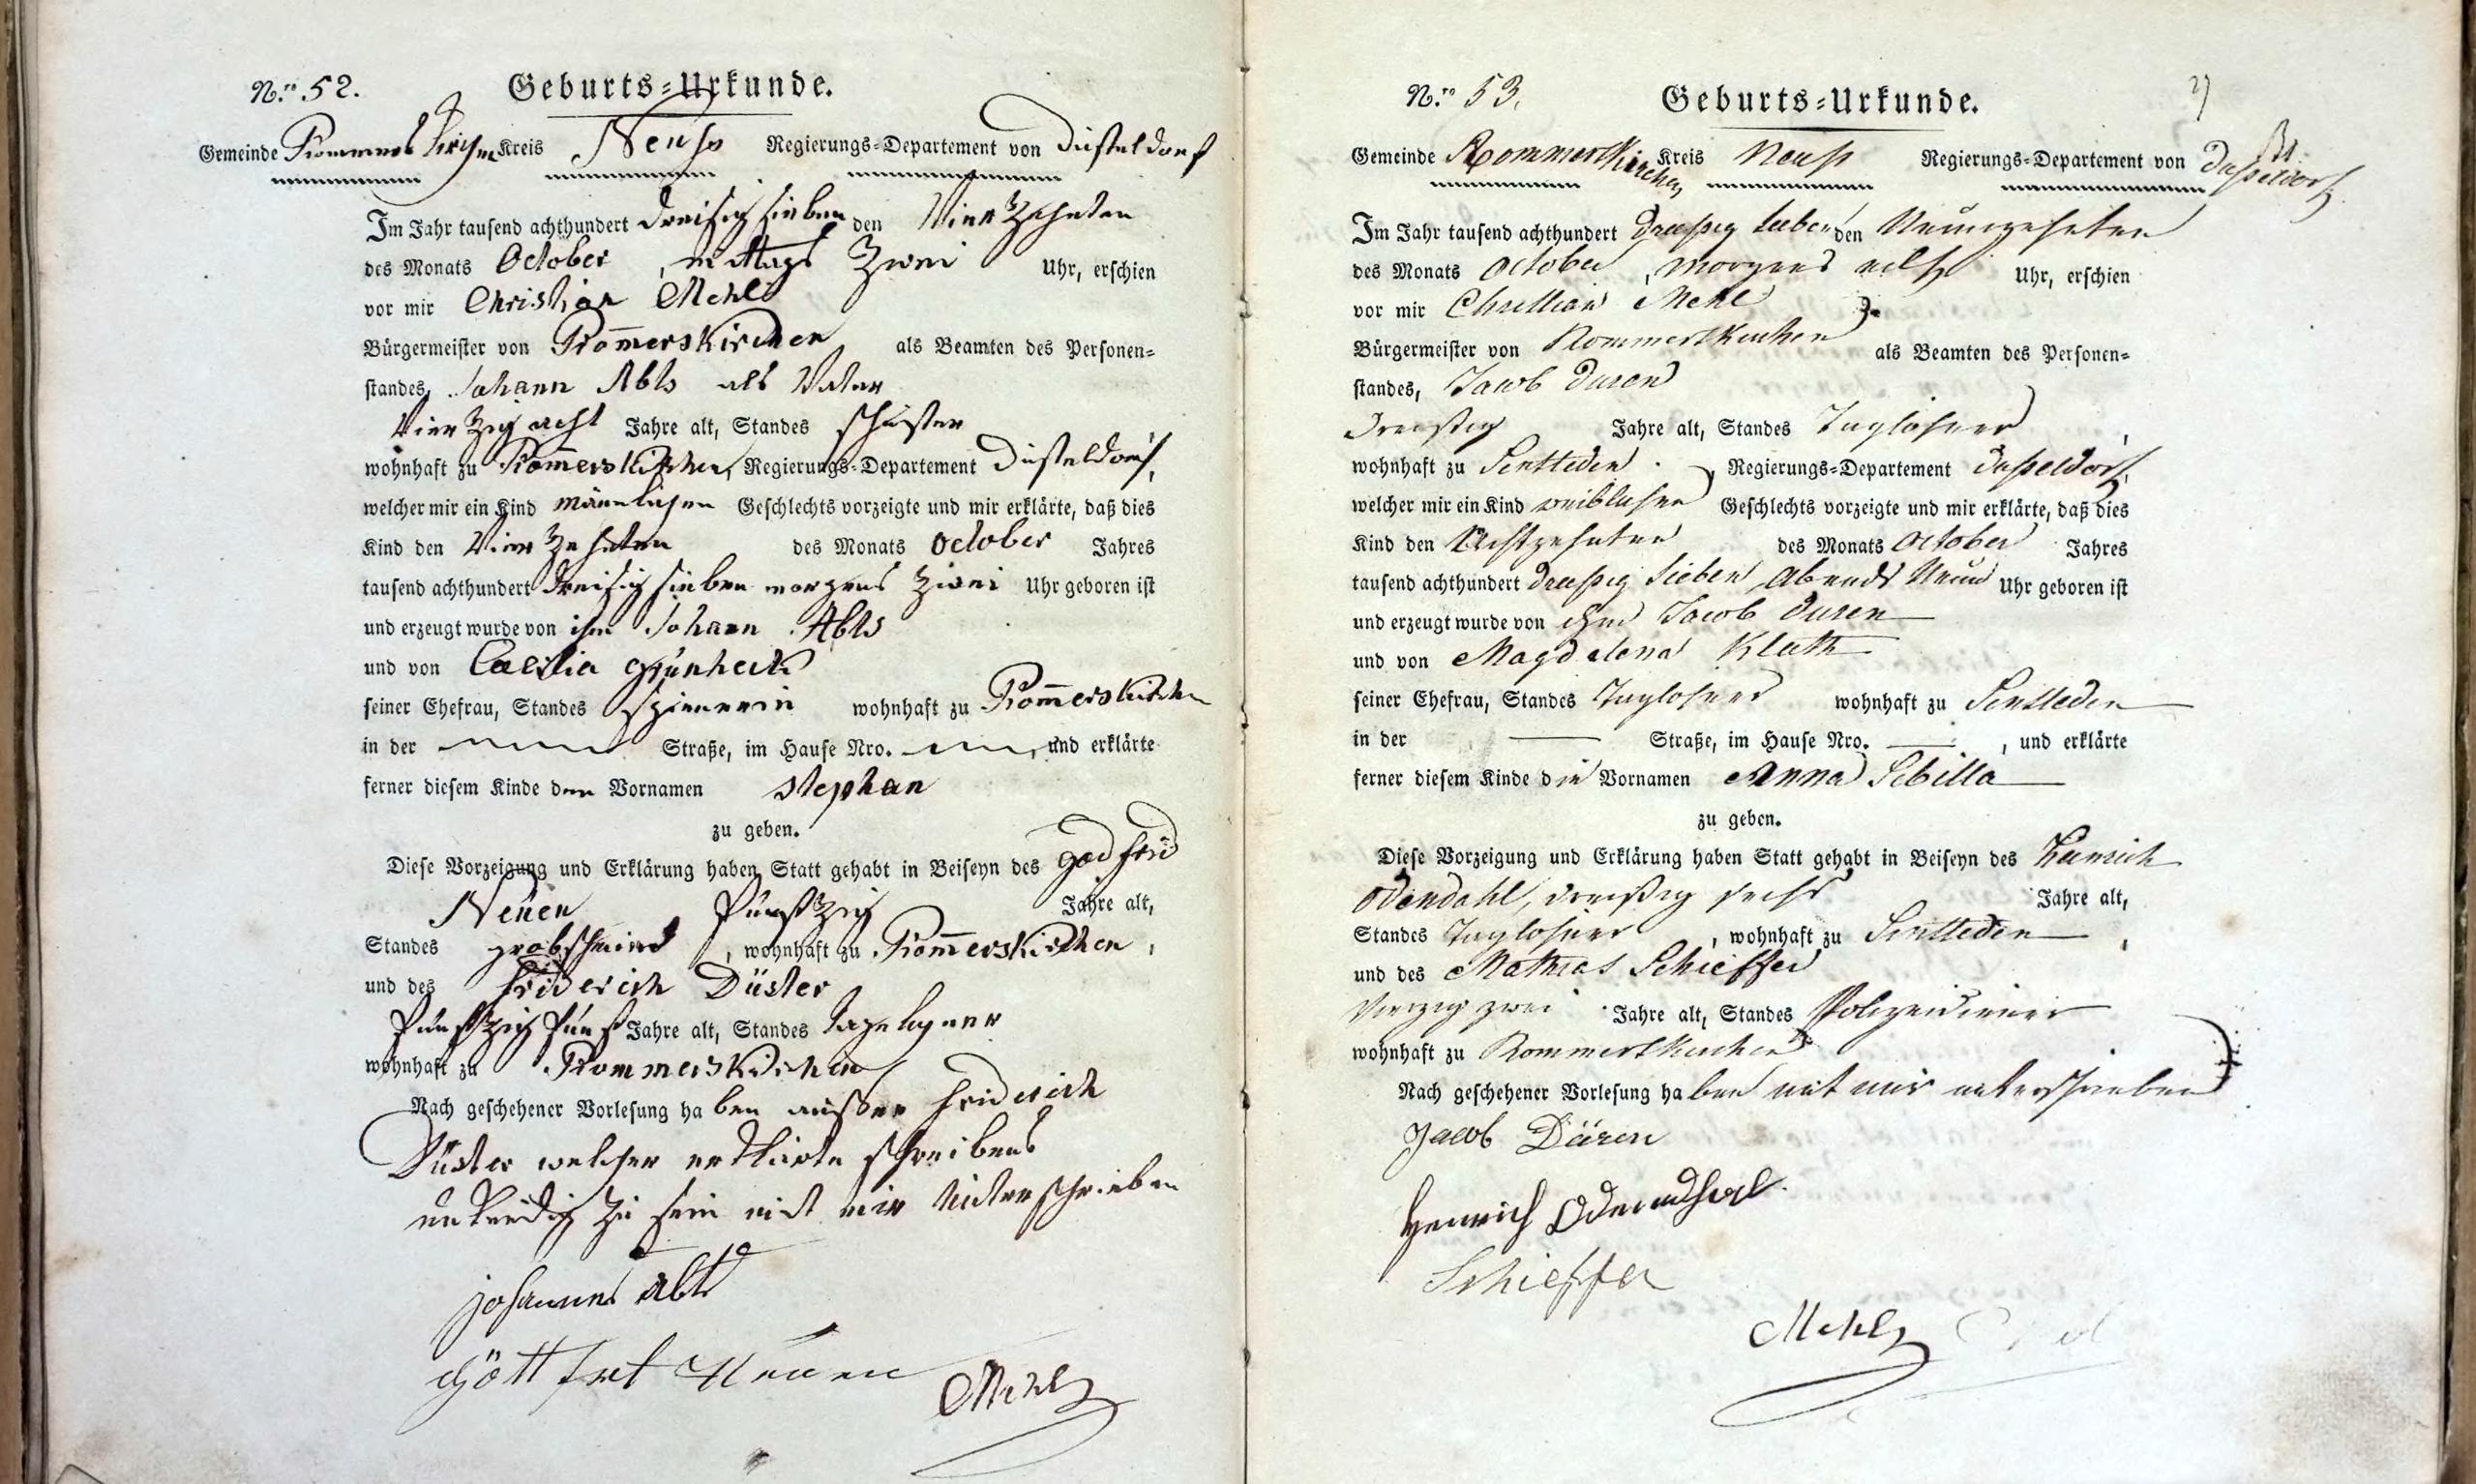 N.ro 52.
Geburts-Urkunde.
Gemeinde Rommerskirchen Kreis Neuss Regierungs-Departement von Düsseldorf
Im Jahr tausend achthundert dreisig sieben den Vierzehnten
des Monats October, mittags Zwei Uhr, erschien
vor mir Christian Mehl
Bürgermeister von Rom̄erskirchen als Beamten des Personen-
standes, Johann Abts als Vater
Vierzig acht Jahre alt, Standes schuster
wohnhaft zu Rom̄erskirchen, Regierungs-Departement Düsseldorf,
welcher mir ein Kind mänlichen Geschlechts vorzeigte und mir erklärte, daß dies
Kind den Vierzehnten des Monats October Jahres
tausend achthundert dreisig sieben morgens Zwei Uhr geboren ist
und erzeugt wurde von ihm Johann Abts
und von Caecilia
seiner Ehefrau, Standes Spinnerin wohnhaft zu Rom̄erskirchen
in der Straße, im Hause Nro. , und erklärte
ferner diesem Kinde den Vornamen Stephan
zu geben.
Diese Vorzeigung und Erklärung haben Statt gehabt in Beiseyn des Godfrid
Neuen Fünfzig Jahre alt,
Standes grobschmied, wohnhaft zu Rom̄erskirchen,
und des Friderich Düster
Fünfzig fünf Jahre alt, Standes Tagelöhner
wohnhaft zu Rommerskirchen
Nach geschehener Vorlesung haben außer Friderich
Düster welcher erklärte schreibens
unkundig zu sein mit mir Unterschrieben
Johannes Abts
Göttfret Neuen
Mehl
N.ro 53.
Geburts-Urkunde.
Gemeinde Rommerskirchen Kreis Neuss Regierungs-Departement von Düsseldorf
Im Jahr tausend achthundert dreißig sieben den Neunzehnten
des Monats October, morgens eilf Uhr, erschien
vor mir Christian Mehl
Bürgermeister von Rommerskirchen als Beamten des Personen-
standes, Jacob Duren
Dreißig Jahre alt, Standes Taglöhner
wohnhaft zu Sinsteden, Regierungs-Departement Düsseldorf,
welcher mir ein Kind weiblichen Geschlechts vorzeigte und mir erklärte, daß dies
Kind den Achtzehnten des Monats October Jahres
tausend achthundert dreißig sieben Abends Neun Uhr geboren ist
und erzeugt wurde von ihm Jacob Duren
und von Magdalena Kluth
seiner Ehefrau, Standes Taglöhner wohnhaft zu Sinsteden
in der — Straße, im Hause Nro. —, und erklärte
ferner diesem Kinde die Vornamen Anna Sibilla
zu geben.
Diese Vorzeigung und Erklärung haben Statt gehabt in Beiseyn des Heinrich
Odendahl, dreißig sechs Jahre alt,
Standes Taglöhner, wohnhaft zu Sinsteden,
und des Mathias Schieffer
Vierzig zwei Jahre alt, Standes Polizeidiener
wohnhaft zu Rommerskirchen
Nach geschehener Vorlesung haben mit mir unterschrieben
Jacob Düren
Henrich Odendhal
Schieffer
Mehl